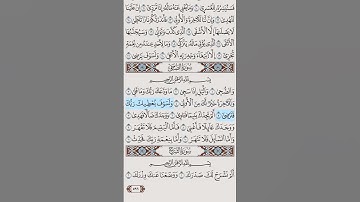 فَسَنُيَسِّرُهُۥ لِلْعُسْرَىٰ ١٠ وَمَا يُغْنِي عَنْهُ مَالُهُۥٓ إِذَا تَرَدَّىٰٓ ١١ إِنَّ عَلَيْنَا
لَلْهُدَىٰ ١٢ وَإِنَّ لَنَا لَلْءَاخِرَةَ وَٱلْأُولَىٰ ١٣ فَأَنذَرْتُكُمْ نَارًا تَلَظَّىٰ ١٤
لَا يَصْلَىٰهَآ إِلَّا ٱلْأَشْقَى ١٥ ٱلَّذِي كَذَّبَ وَتَوَلَّىٰ ١٦ وَسَيُجَنَّبُهَا
ٱلْأَتْقَى ١٧ ٱلَّذِي يُؤْتِي مَالَهُۥ يَتَزَكَّىٰ ١٨ وَمَا لِأَحَدٍ عِندَهُۥ مِن نِّعْمَةٍ
تُجْزَىٰٓ ١٩ إِلَّا ٱبْتِغَآءَ وَجْهِ رَبِّهِ ٱلْأَعْلَىٰ ٢٠ وَلَسَوْفَ يَرْضَىٰ ٢١
سُورَةُ الضُّحَىٰ
بِسْمِ ٱللَّهِ ٱلرَّحْمَٰنِ ٱلرَّحِيمِ
وَٱلضُّحَىٰ ١ وَٱلَّيْلِ إِذَا سَجَىٰ ٢ مَا وَدَّعَكَ رَبُّكَ وَمَا قَلَىٰ ٣
وَلَلْءَاخِرَةُ خَيْرٌ لَّكَ مِنَ ٱلْأُولَىٰ ٤ وَلَسَوْفَ يُعْطِيكَ رَبُّكَ
فَتَرْضَىٰٓ ٥ أَلَمْ يَجِدْكَ يَتِيمًا فَـَٔاوَىٰ ٦ وَوَجَدَكَ ضَآلًّا فَهَدَىٰ ٧
وَوَجَدَكَ عَآئِلًا فَأَغْنَىٰ ٨ فَأَمَّا ٱلْيَتِيمَ فَلَا تَقْهَرْ ٩
وَأَمَّا ٱلسَّآئِلَ فَلَا تَنْهَرْ ١٠ وَأَمَّا بِنِعْمَةِ رَبِّكَ فَحَدِّثْ ١١
سُورَةُ الشَّرْحِ
بِسْمِ ٱللَّهِ ٱلرَّحْمَٰنِ ٱلرَّحِيمِ
أَلَمْ نَشْرَحْ لَكَ صَدْرَكَ ١ وَوَضَعْنَا عَنكَ وِزْرَكَ ٢
٥٩٦